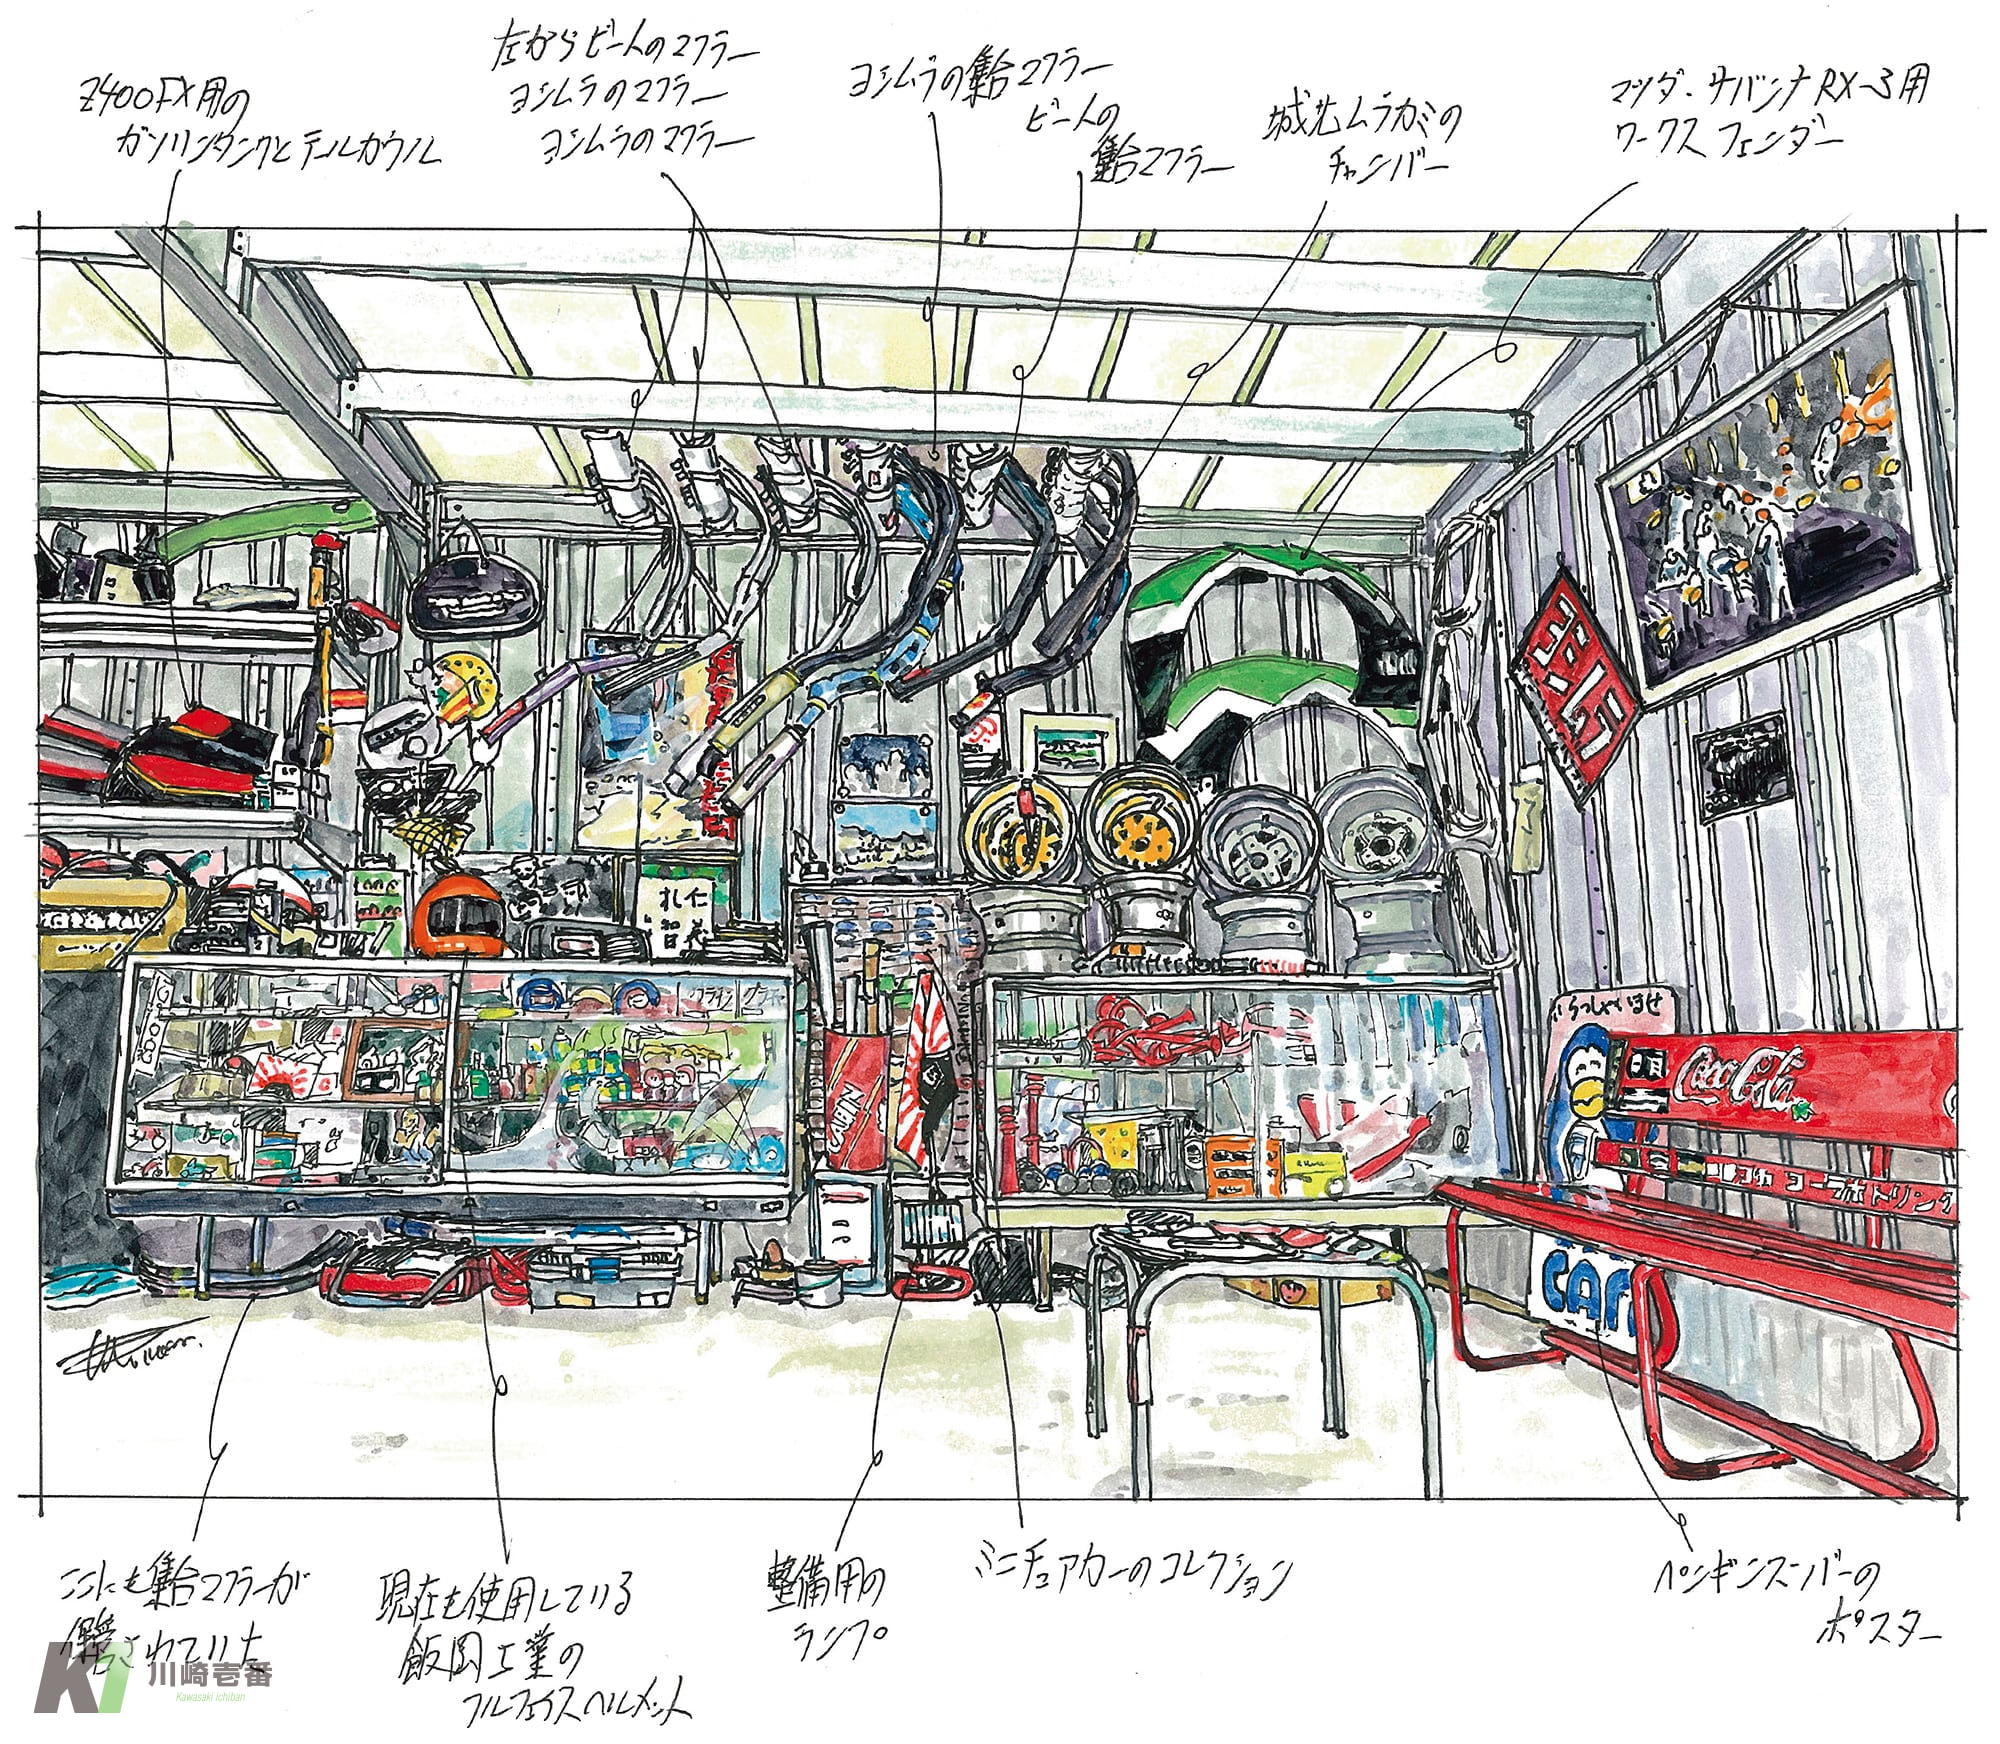 Z400FX用の
ガソリンタンクとテールカウル
左からビートのマフラー
ヨシムラのマフラー
ヨシムラのマフラー
ヨシムラの集合マフラー
ビートの
集合マフラー
城北ムラカミの
チャンバー
マツダ・サバンナRX-3用
ワークスフェンダー
仁義
礼智
いらっしゃいませ
Coca-Cola
コカ・コーラボトリング
CAR
ここにも集合マフラーが
保管されていた
現在も使用している
飯岡工業の
フルフェイスヘルメット
整備用の
ランプ
ミニチュアカーのコレクション
ペンギンズバーの
ポスター
K1 川崎壱番
Kawasaki ichiban